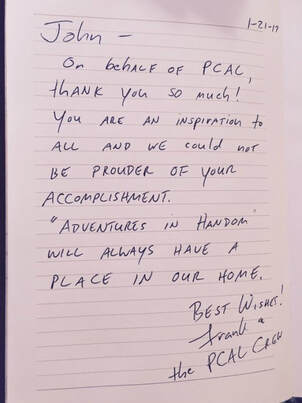 1-21-17
John –
On behalf of PCAL,
thank you so much!
You are an inspiration to
all and we could not
be prouder of your
accomplishment.
"Adventures in Handom"
will always have a
place in our home.
Best Wishes!
Frank &
the PCAL Crew